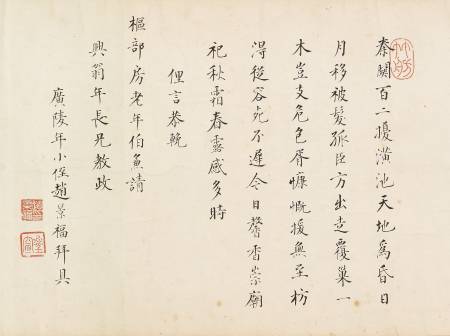 秦關百二擾潢池天地為昏日
月移被髮孤臣方出走覆巢一
木豈支危包胥慷慨援無至枋
得從容死不遲今日馨香崇廟
祀秋霜春露感多時
俚言恭輓
樞部房老年伯兼請
興翁年長兄教政
廣陵年小侄趙景福拜具